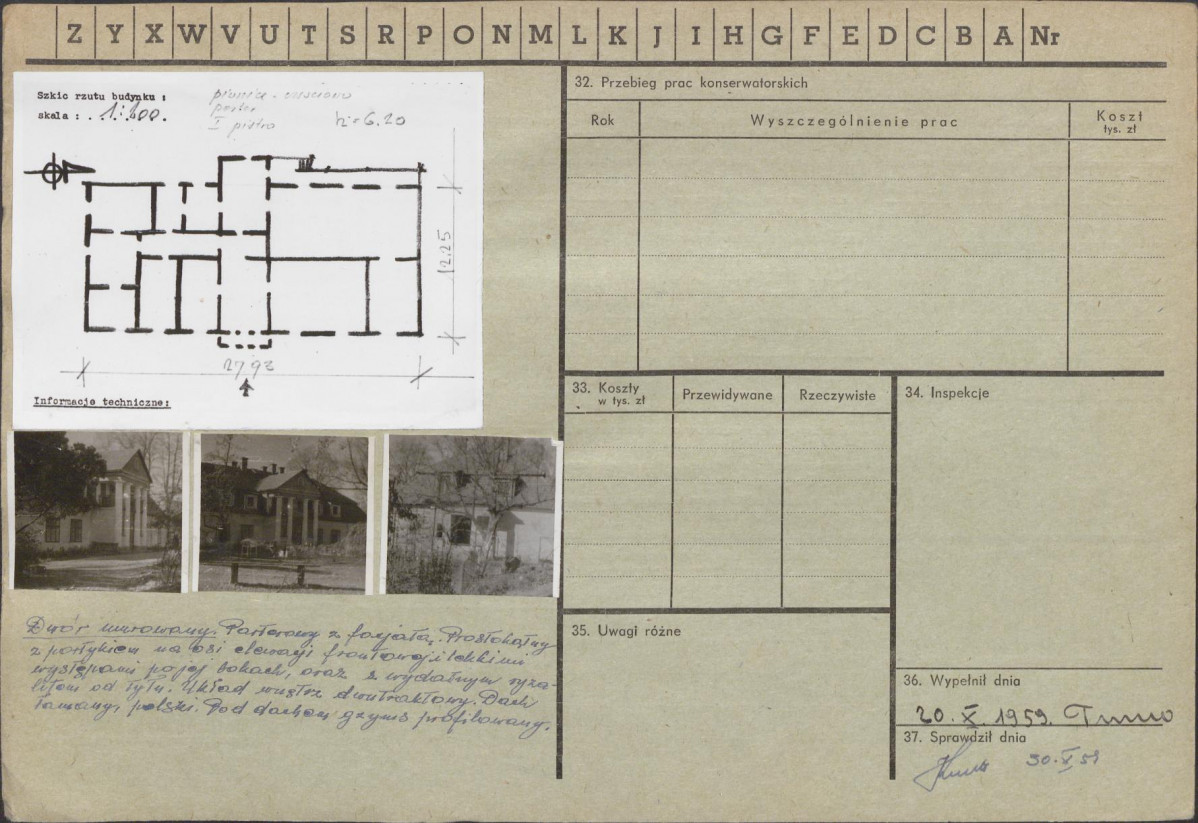 Z Y X W V U T S R P O N M L K J I H G F E D C B A Nr
Szkic rzutu budynku :
skala : . 1:200.
piwnice -
parter
I piętro
h = 6.20
12.25
27,93
Informacje techniczne:
Dwór murowany. Parterowy z facjatą. Prostokątny
z portykiem na osi elewacji frontowej i lekkimi
występami po jej bokach, oraz z wydatnym ryza-
litem od tyłu. Układ wnętrz dwutraktowy. Dach
łamany, polski. Pod dachem gzyms profilowany.
32. Przebieg prac konserwatorskich
Rok
Wyszczególnienie prac
Koszt
tys. zł
33. Koszty
w tys. zł
Przewidywane
Rzeczywiste
34. Inspekcje
35. Uwagi różne
36. Wypełnił dnia
20. X. 1959.
37. Sprawdził dnia
30. X 59